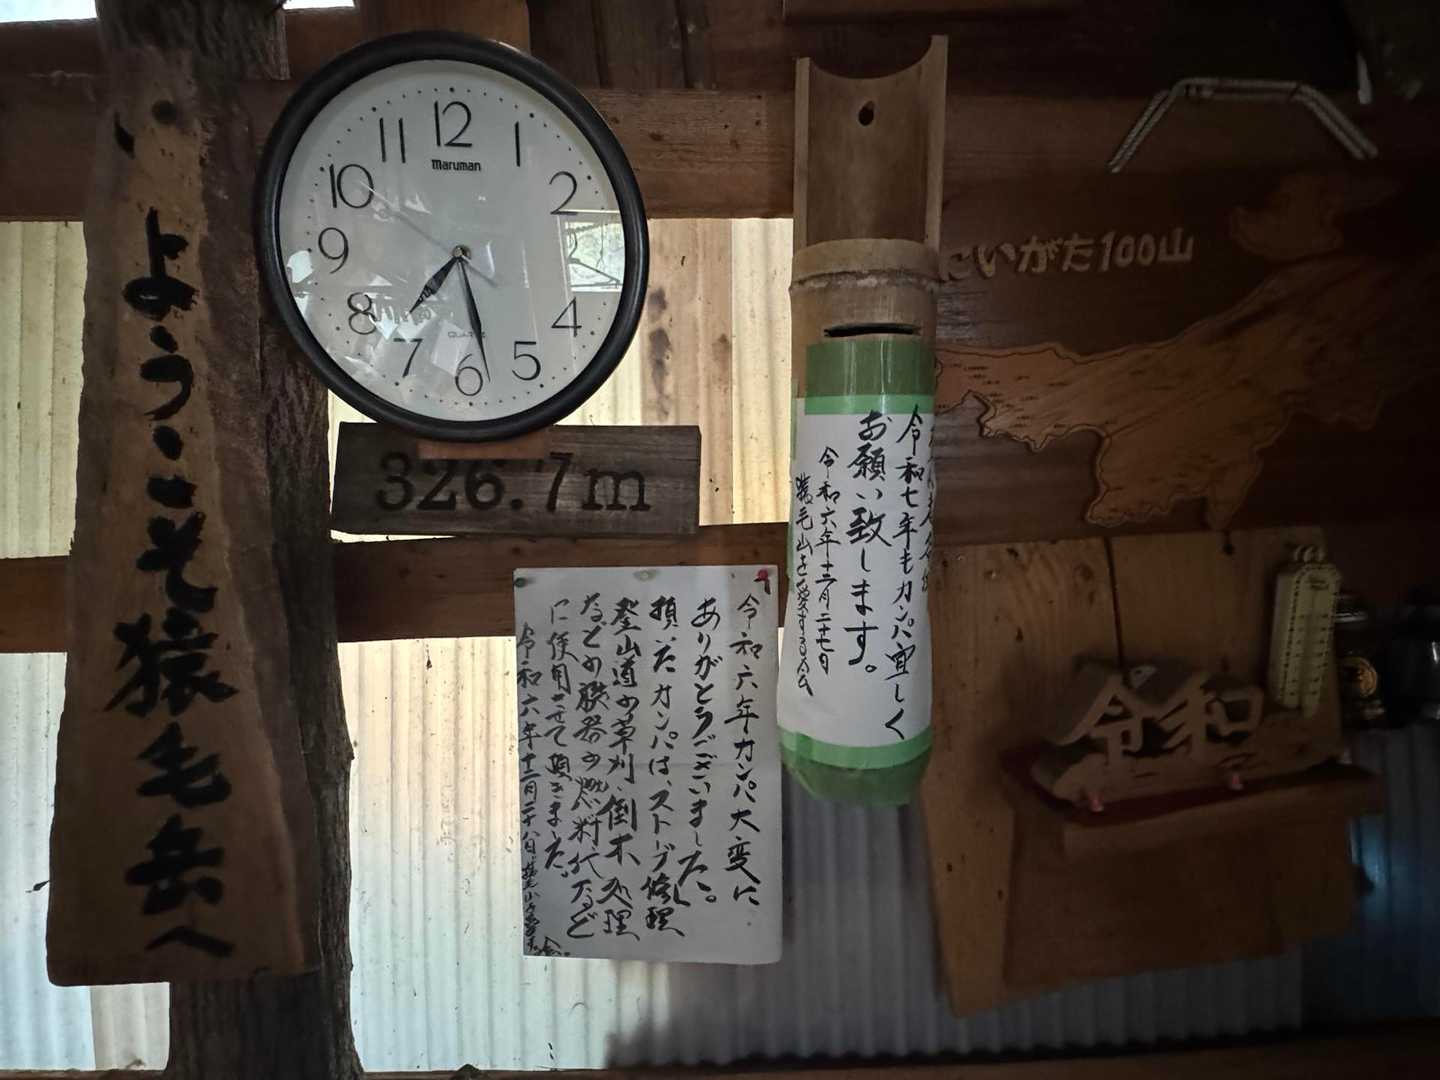 ようこそ猿毛岳へ
12
1
2
3
4
5
6
7
8
9
10
11
maruman
QUARTZ
326.7m
令和六年カンパ大変に
ありがとうございました。
頂いたカンパは、ストーブ修理
登山道の草刈、倒木処理
などの機器の燃料代など
に使用させて頂きました。
令和六年十二月二十八日
令和七年もカンパ宜しく
お願い致します。
令和六年十二月二十七日
猿毛山を愛する会
にいがた100山
令和